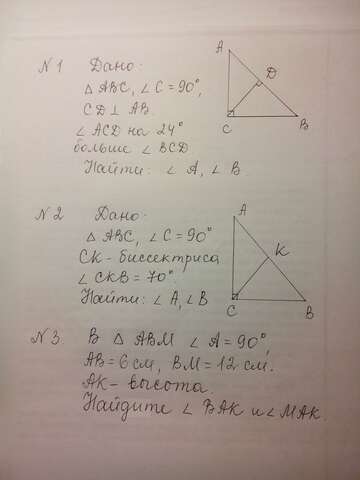 N 1 Дано:
△ ABC, ∠ C = 90°,
CD ⊥ AB.
∠ ACD на 24°
больше ∠ BCD
Найти: ∠ A, ∠ B.
A
D
C
B
N 2 Дано:
△ ABC, ∠ C = 90°
CK - биссектриса
∠ CKB = 70°.
Найти: ∠ A, ∠ B
A
K
C
B
N 3 В △ ABM ∠ A = 90°,
AB = 6 см, BM = 12 см.
AK - высота.
Найдите ∠ BAK и ∠ MAK.